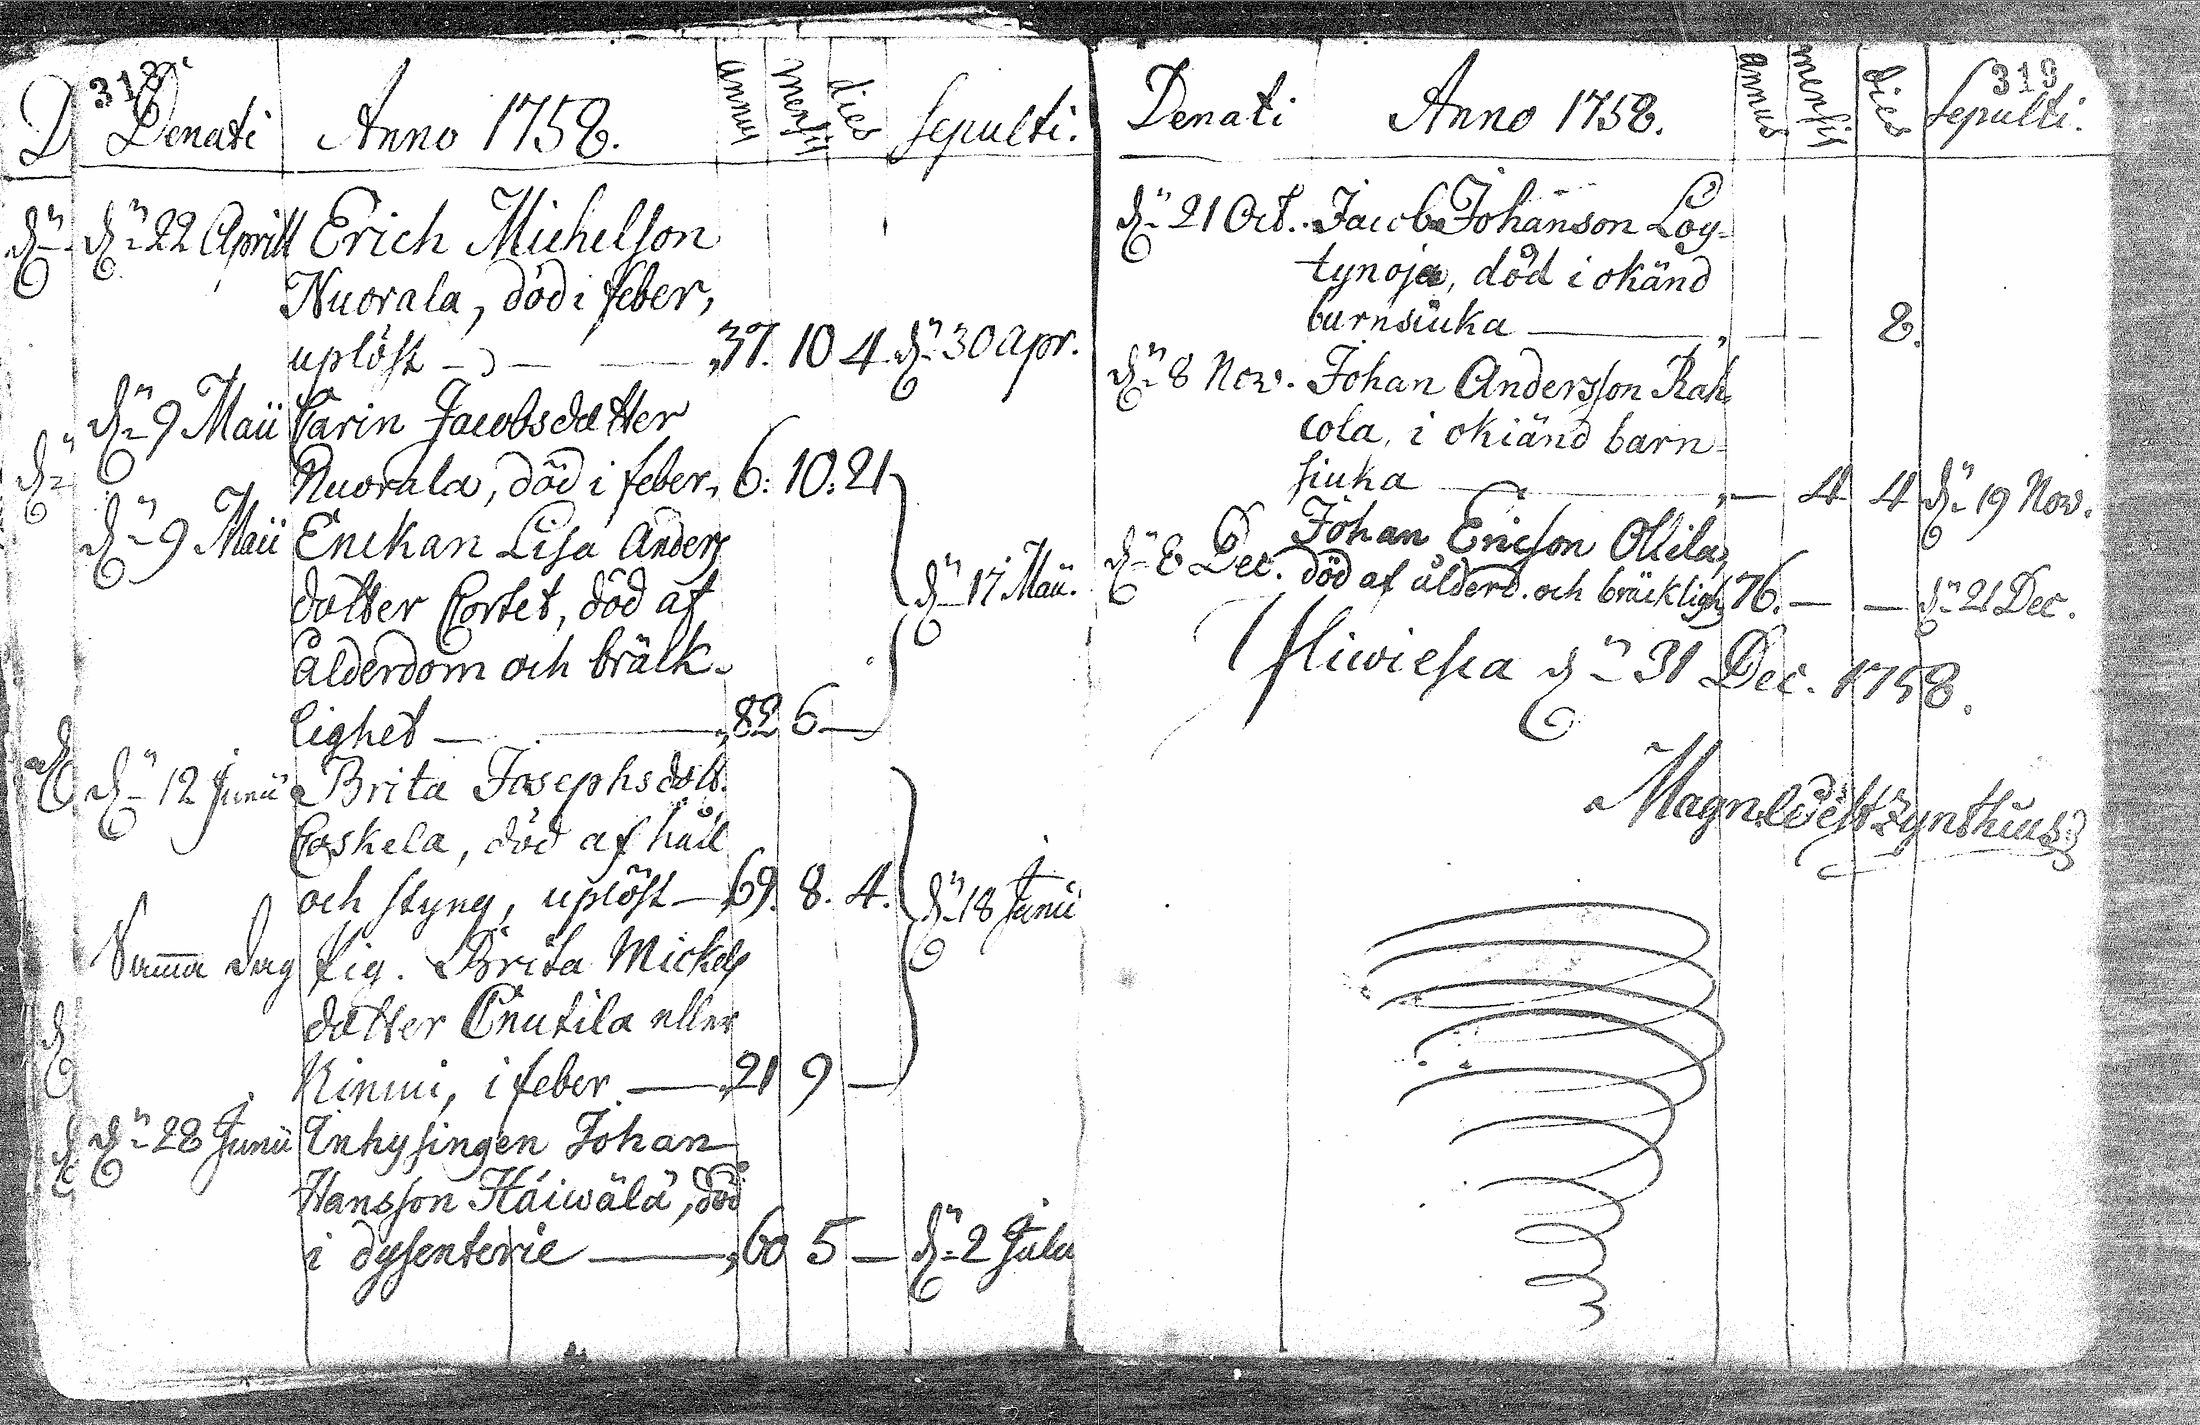 318
Denati Anno 1758. annus mensis dies Sepulti.
dn 22 April Erich Michelson
Nuorala, död i feber,
uplöst — 37. 10 4 dn 30 Apr.
dn 9 Maii Carin Jacobsdatter
Nuorala, död i feber, 6. 10. 21
dn 9 Maii Enckan Lisa Anders
datter Cortet, död af dn 17 Maii.
ålderdom och bräck-
lighet — 82 6 —
dn 12 Junii Brita Josephsdott.
Coskela, död af håll
och styng, uplöst — 69. 8. 4. dn 18 Junii
Samma dag Pig. Brita Mickels
datter Cnutila eller
Kinnui, i feber — 21 9 —
dn 28 Junii Inhysingen Johan
Hansson Häiwälä, död
i dysenterie — 60 5 — dn 2 Julii
319
Denati Anno 1758. annus mensis dies Sepulti.
dn 21 Oct. Jacob Johanson Löy-
tynoja, död i okänd
barnsiuka — — 8.
dn 8 Nov. Johan Andersson Rah-
cola, i okiänd barn-
siuka — 4 4 dn 19 Nov.
dn 8 Dec. Johan Ericson Ollila,
död af ålderd. och bräckligh. 76. — — dn 21 Dec.
Yliwieska dn 31 Dec. 1758.
Magn. Westzynthius